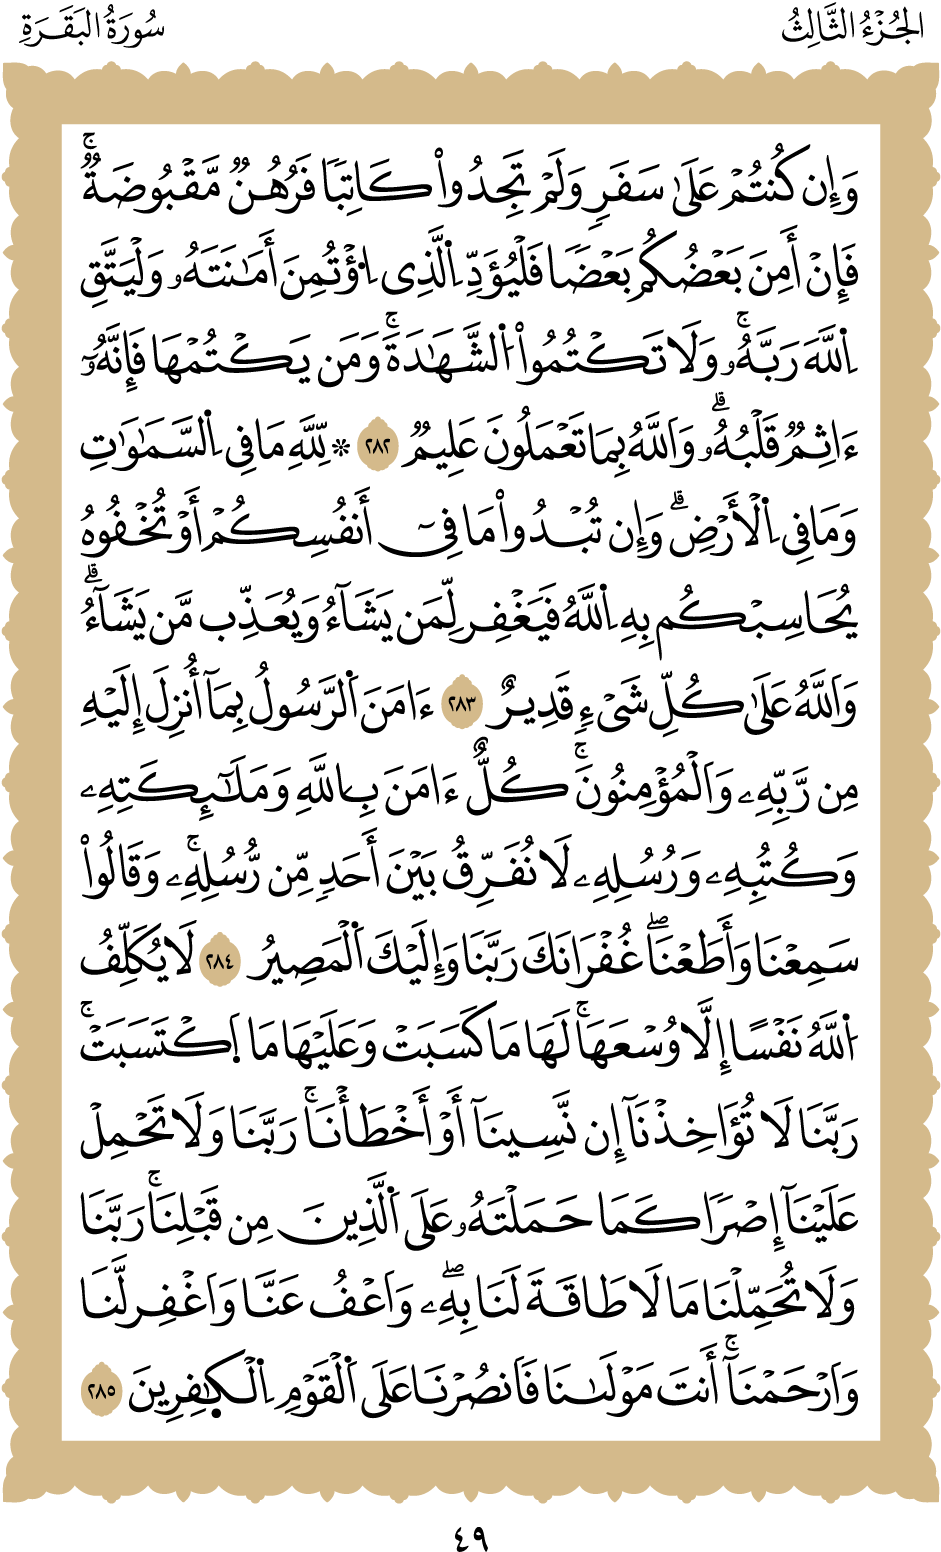 الجُزْءُ الثَّالِثُ
سُورَةُ البَقَرَةِ
وَإِن كُنتُمْ عَلَىٰ سَفَرٖ وَلَمْ تَجِدُواْ كَاتِبٗا فَرُهُنٞ مَّقْبُوضَةٞۚ
فَإِنْ أَمِنَ بَعْضُكُم بَعْضٗا فَلْيُؤَدِّ اِ۬لَّذِى اِ۟ؤْتُمِنَ أَمَٰنَتَهُۥ وَلْيَتَّقِ
اِ۬للَّهَ رَبَّهُۥۚ وَلَا تَكْتُمُواْ اُ۬لشَّهَٰدَةَۚ وَمَن يَكْتُمْهَا فَإِنَّهُۥٓ
ءَاثِمٞ قَلْبُهُۥۗ وَاَللَّهُ بِمَا تَعْمَلُونَ عَلِيمٞ ٢٨٢ * لِّلَّهِ مَا فِى اِ۬لسَّمَٰوَٰتِ
وَمَا فِى اِ۬لْأَرْضِۗ وَإِن تُبْدُواْ مَا فِىٓ أَنفُسِكُمْ أَوْ تُخْفُوهُ
يُحَاسِبْكُم بِهِ اِ۬للَّهُ فَيَغْفِر لِّمَن يَشَآءُ وَيُعَذِّب مَّن يَشَآءُۗ
وَاَللَّهُ عَلَىٰ كُلِّ شَىْءٖ قَدِيرٌ ٢٨٣ ءَامَنَ اَ۬لرَّسُولُ بِمَآ أُنزِلَ إِلَيْهِ
مِن رَّبِّهِۦ وَاَلْمُؤْمِنُونَۚ كُلٌّ ءَامَنَ بِاللَّهِ وَمَلَٰٓئِكَتِهِۦ
وَكُتُبِهِۦ وَرُسُلِهِۦ لَا نُفَرِّقُ بَيْنَ أَحَدٖ مِّن رُّسُلِهِۦۚ وَقَالُواْ
سَمِعْنَا وَأَطَعْنَاۖ غُفْرَانَكَ رَبَّنَا وَإِلَيْكَ اَ۬لْمَصِيرُ ٢٨٤ لَا يُكَلِّفُ
اُ۬للَّهُ نَفْسًا إِلَّا وُسْعَهَاۚ لَهَا مَا كَسَبَتْ وَعَلَيْهَا مَا اَ۪كْتَسَبَتْۚ
رَبَّنَا لَا تُؤَاخِذْنَآ إِن نَّسِينَآ أَوْ أَخْطَأْنَاۚ رَبَّنَا وَلَا تَحْمِلْ
عَلَيْنَآ إِصْرٗا كَمَا حَمَلْتَهُۥ عَلَى اَ۬لَّذِينَ مِن قَبْلِنَاۚ رَبَّنَا
وَلَا تُحَمِّلْنَا مَا لَا طَاقَةَ لَنَا بِهِۦۖ وَاَعْفُ عَنَّا وَاَغْفِر لَّنَا
وَاَرْحَمْنَآۚ أَنتَ مَوْلَىٰنَا فَاَنصُرْنَا عَلَى اَ۬لْقَوْمِ اِ۬لْكٰ۪فِرِينَ ٢٨٥
٤٩